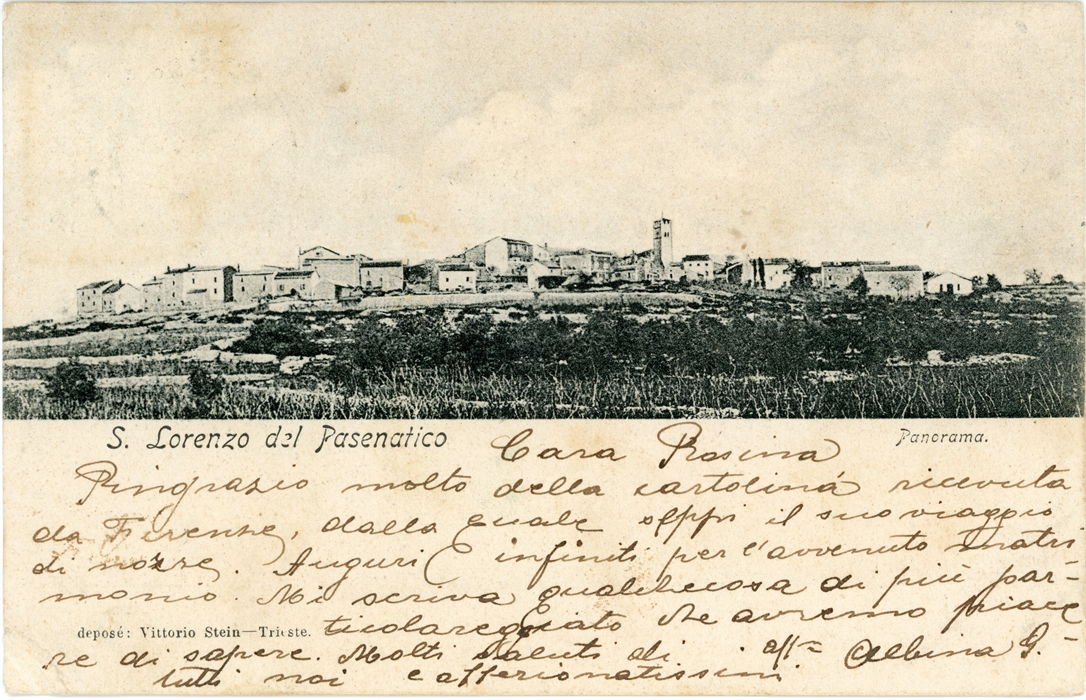 S. Lorenzo del Pasenatico
Panorama.
Cara Rosina
Ringrazio molto della cartolina ricevuta
da Firenze, dalla quale seppi il suo viaggio
di nozze. Auguri infiniti per l'avvenuto matri
monio. Mi scriva qualchecosa di più par-
deposé: Vittorio Stein—Trieste.
ticolareggiato che avremo piace
re di sapere. Molti saluti di aff= Albina G.
tutti noi e affezionatissimi